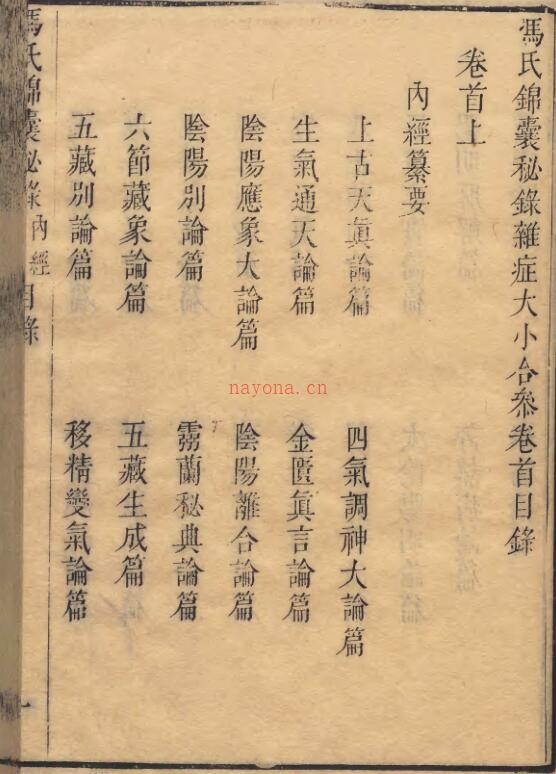 馮氏錦囊秘錄雜症大小合叅卷首目錄
卷首上
內經纂要
上古天眞論篇
四氣調神大論篇
生氣通天論篇
金匱眞言論篇
陰陽應象大論篇
陰陽離合論篇
陰陽別論篇
靈蘭秘典論篇
六節藏象論篇
五藏生成篇
五藏別論篇
移精變氣論篇
馮氏錦囊秘錄 內經 目錄 一
nayona.cn